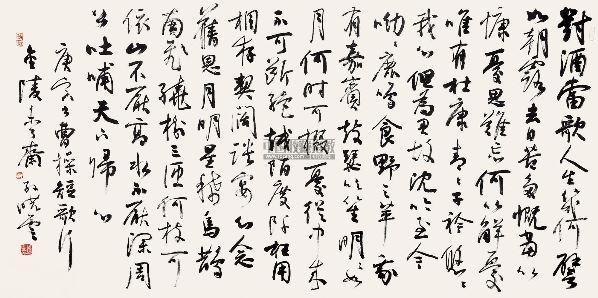 對酒當歌人生幾何譬
如朝露去日苦多慨當以
慷憂思難忘何以解憂
唯有杜康青青子衿悠悠
我心但為君故沈吟至今
呦呦鹿鳴食野之苹我
有嘉賓鼓瑟吹笙明明如
月何時可掇憂從中來
不可斷絕越陌度阡枉用
相存契闊談宴心念
舊恩月明星稀烏鵲
南飛繞樹三匝何枝可
依山不厭高水不厭深周
公吐哺天下歸心
庚寅冬曹操短歌行
金陵未了齋孫曉雲